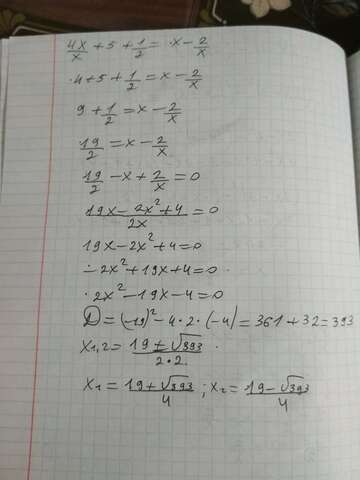 4x/x + 5 + 1/2 = x - 2/x
·4 + 5 + 1/2 = x - 2/x
9 + 1/2 = x - 2/x
19/2 = x - 2/x
19/2 - x + 2/x = 0
(19x - 2x² + 4)/2x = 0
19x - 2x² + 4 = 0
-2x² + 19x + 4 = 0
·2x² - 19x - 4 = 0
D = (-19)² - 4·2·(-4) = 361 + 32 = 393
x1,2 = (19 ± √393)/(2·2)
x1 = (19 + √393)/4 ; x2 = (19 - √393)/4